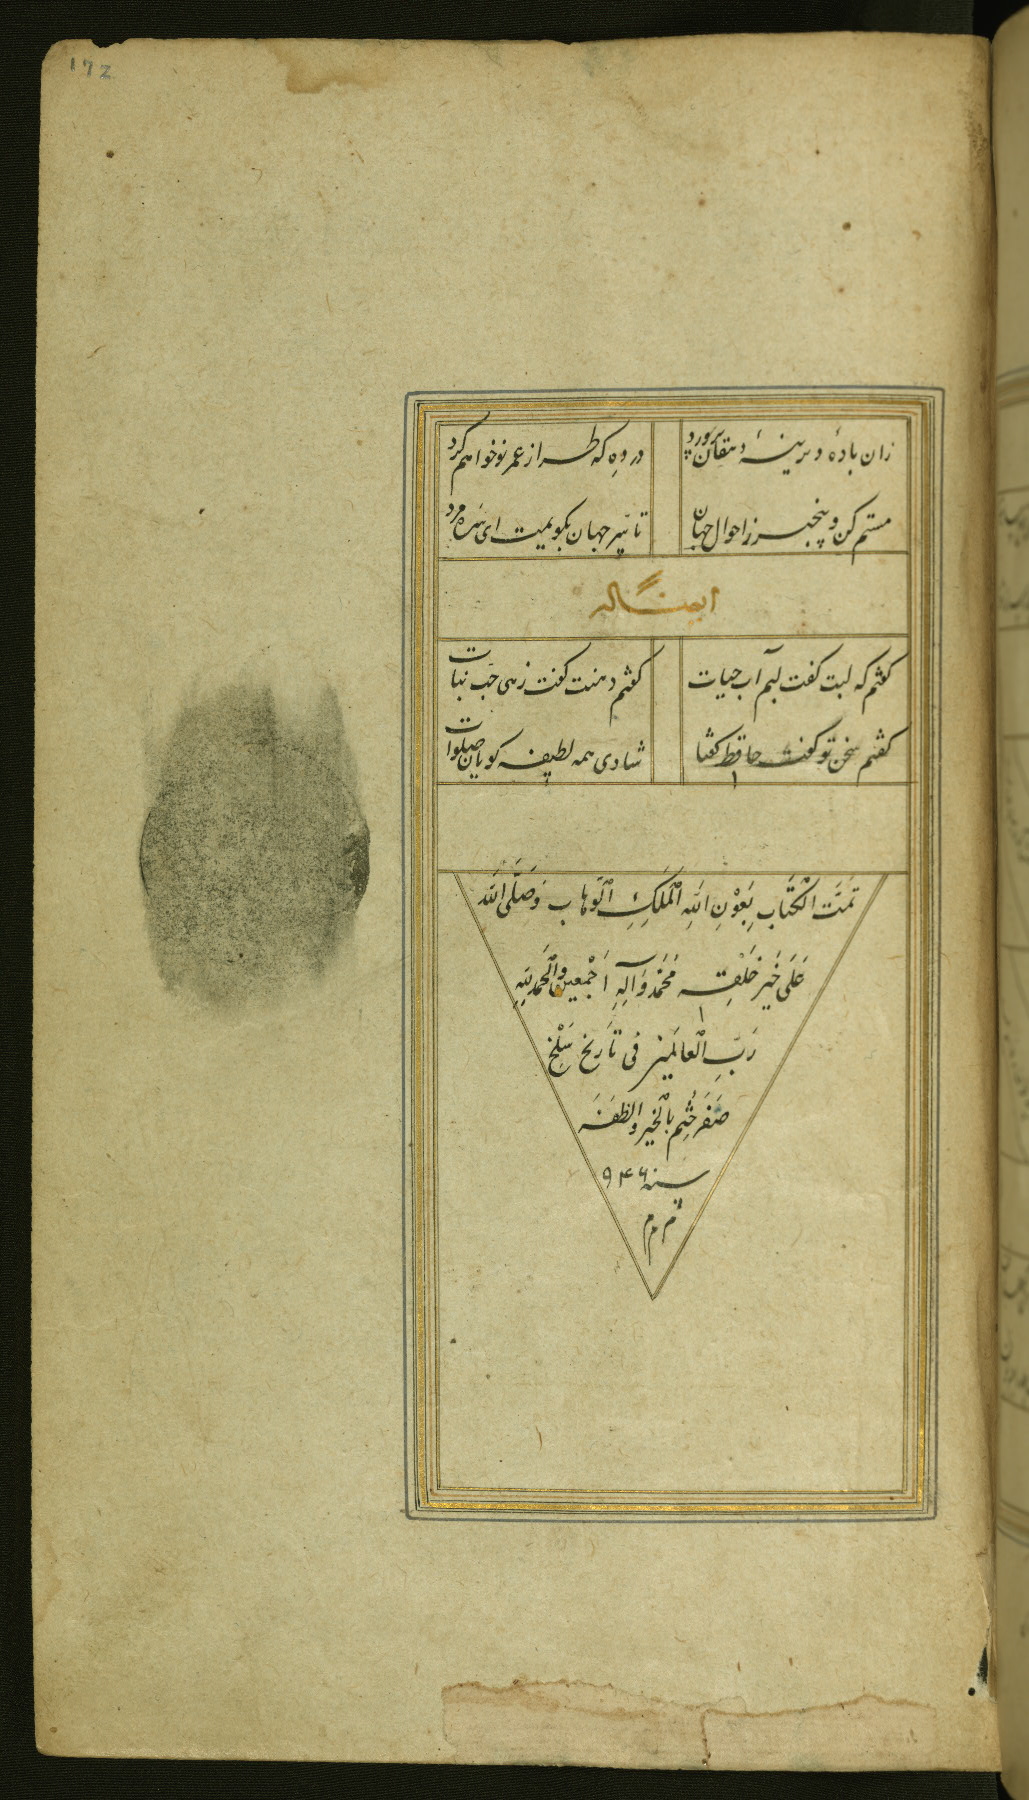 172
زان بادهٔ دیرینهٔ دهقان پرورد
در ده که طراز عمر نو خواهم کرد
مستم کن و بیخبر ز احوال جهان
تا سر جهان بگویمت ای سره مرد
ایضاً له
گفتم که لبت گفت لبم آب حیات
گفتم دهنت گفت زهی حب نبات
گفتم سخن تو گفت حافظ گفتا
شادی همه لطیفه گویان صلوات
تَمَّت الْکتَاب بِعَوْنِ اللهِ الْمَلِکِ الْوَهاب وَصَلَّی اللّه
عَلَی خَیرِ خَلْقِه مُحَمَّد وَآلِهِ اَجْمَعین وَالْحَمدُ لِلّهِ
رَبِّ الْعالَمین فی تاَریخ سَلْخ
صَفَر خُتِم بِالْخیر وَ الظفَر
سنه ۹۴۶
م م م